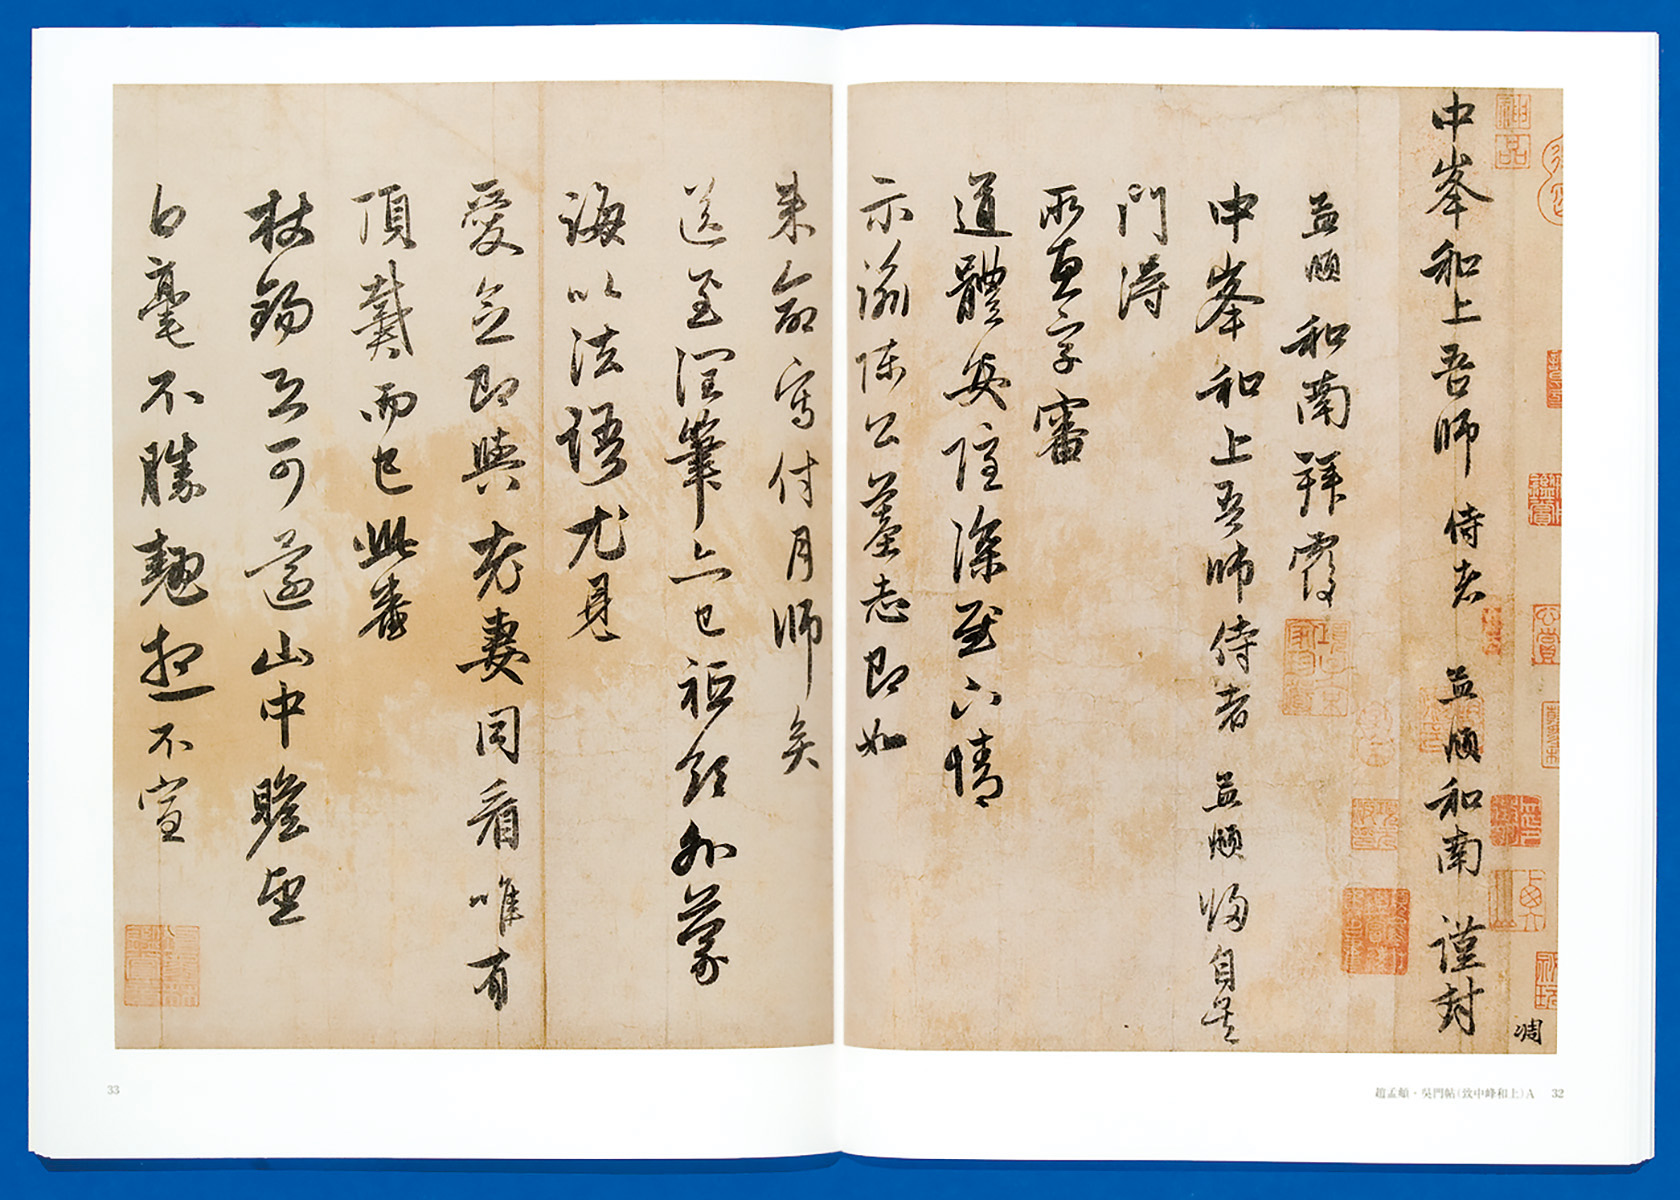 中峯和上吾師 侍者 孟頫和南 謹封
凋
孟頫和南拜覆
中峯和上吾師侍者 孟頫歸自吴
門得
所惠字審
道體安隱深慰下情
示諭陳公墓志即如
来命寫付月師矣
送至潤筆亦已祗領外蒙
誨以法語尤見
愛念即與老妻同看唯有
頂戴而已此審
杖錫可還山中瞻望
白毫不勝翹想不宣
33
趙孟頫・吳門帖(致中峰和上)A 32